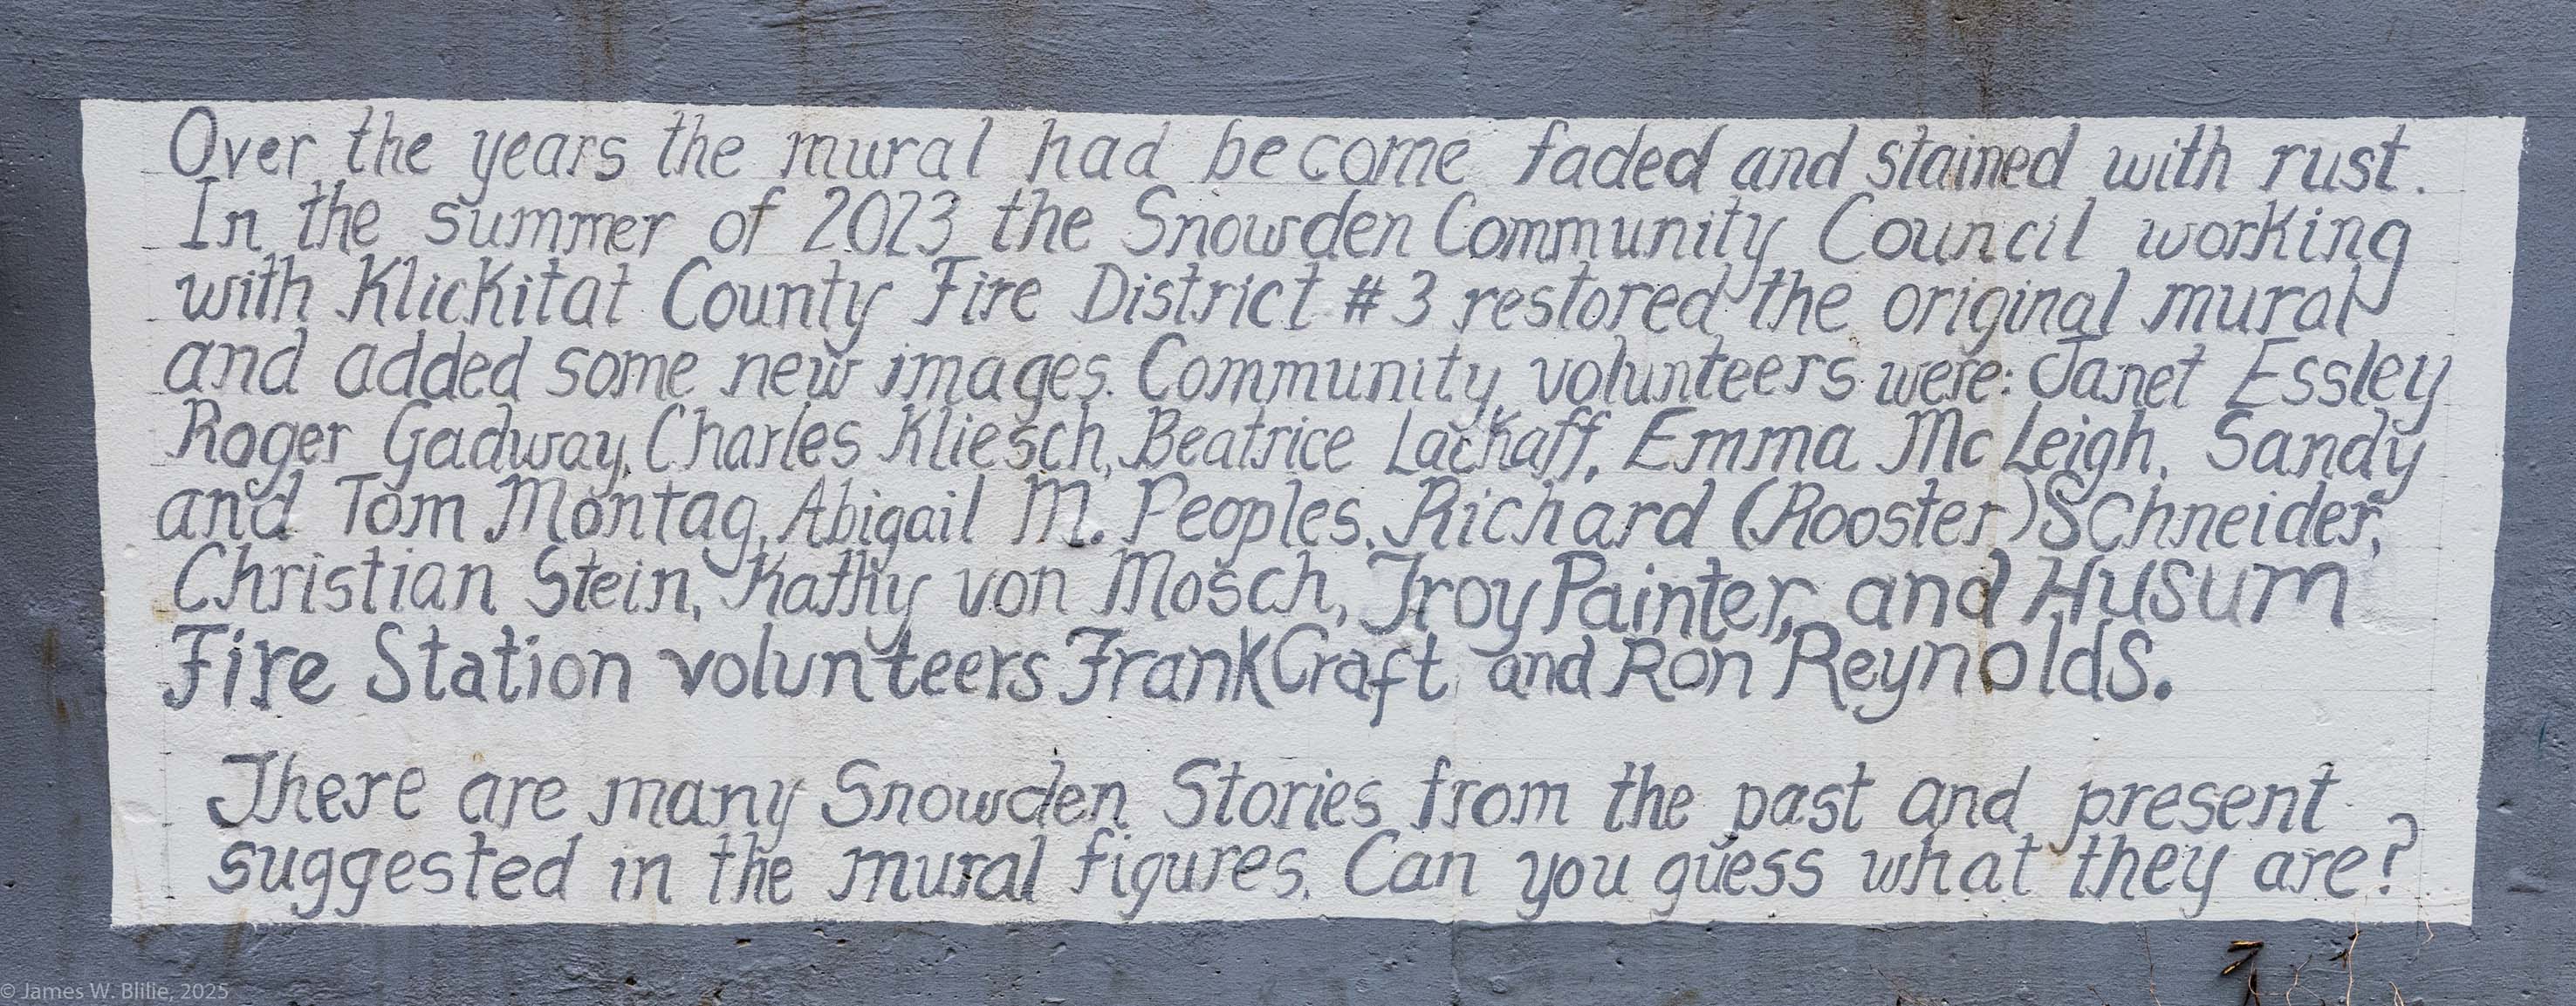 Over the years the mural had become faded and stained with rust.
In the summer of 2023 the Snowden Community Council working
with Klickitat County Fire District #3 restored the original mural
and added some new images. Community volunteers were: Janet Essley
Roger Gadway, Charles Kliesch, Beatrice Lackaff, Emma McLeigh, Sandy
and Tom Montag, Abigail M. Peoples, Richard (Rooster) Schneider,
Christian Stein, Kathy von Mosch, Troy Painter, and Husum
Fire Station volunteers Frank Craft and Ron Reynolds.
There are many Snowden Stories from the past and present
suggested in the mural figures. Can you guess what they are?
© James W. Blilie, 2025